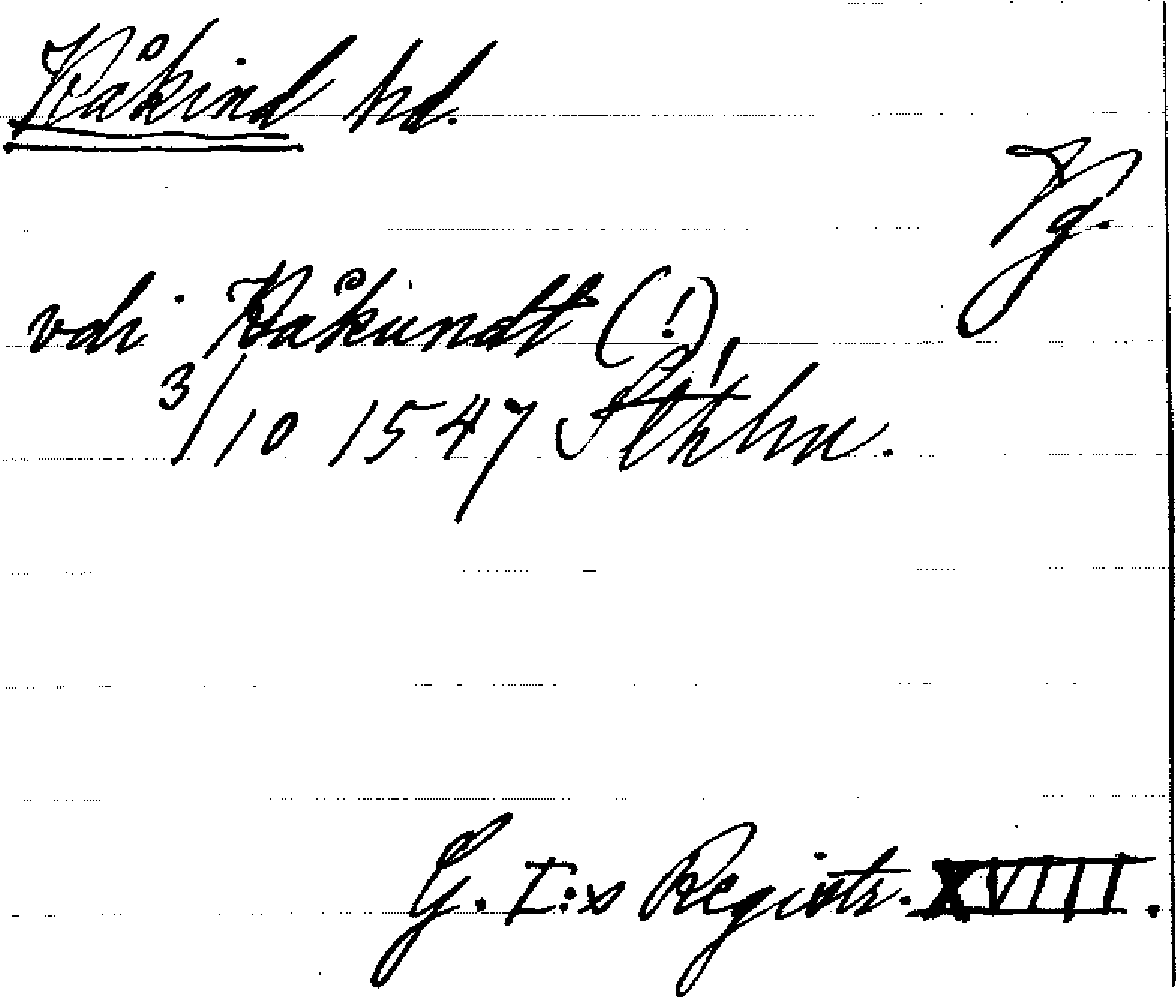 Kåkind hd.
Vg.
vdi Kåkundt (!)
3/10 1547 Sthlm.
G. I:s Registr. XVIII.